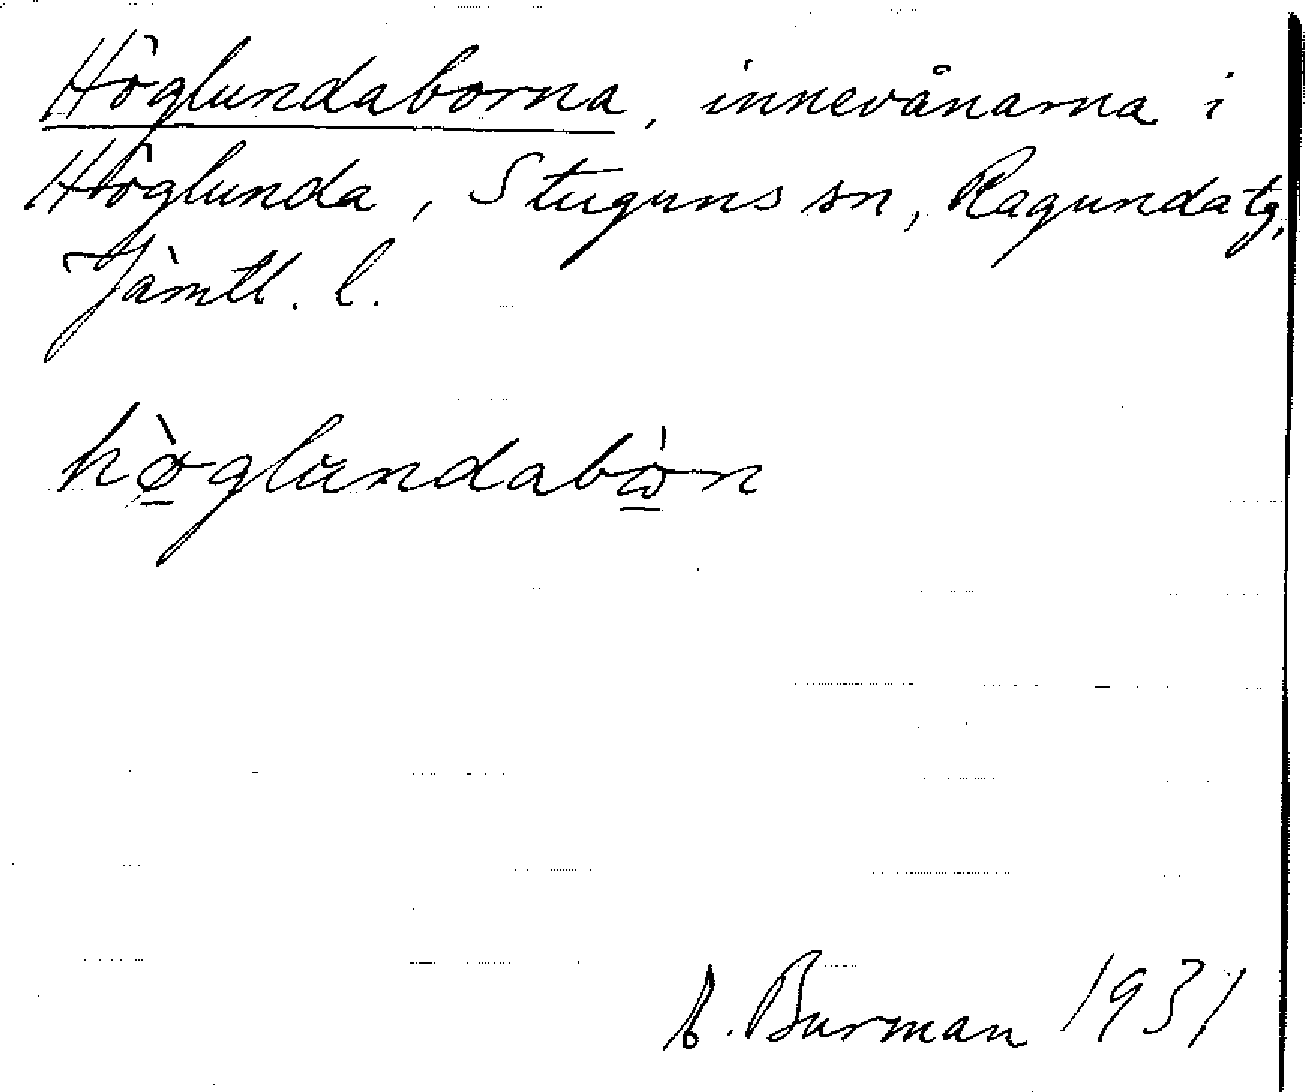 Höglundaborna, innevånarna i
Höglunda, Stuguns sn, Ragunda tg,
Jämtl. l.
hø̀glundabὼn
Burman 1931